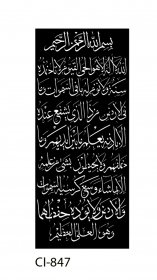 بسم الله الرحمن الرحيم
الله لا إله إلا هو الحي القيوم لا تأخذه
سنة ولا نوم له ما في السموات وما
في الأرض من ذا الذي يشفع عنده
إلا بإذنه يعلم ما بين أيديهم وما
خلفهم ولا يحيطون بشيء من علمه
إلا بما شاء وسع كرسيه السموات
والأرض ولا يؤده حفظهما
وهو العلي العظيم
CI-847